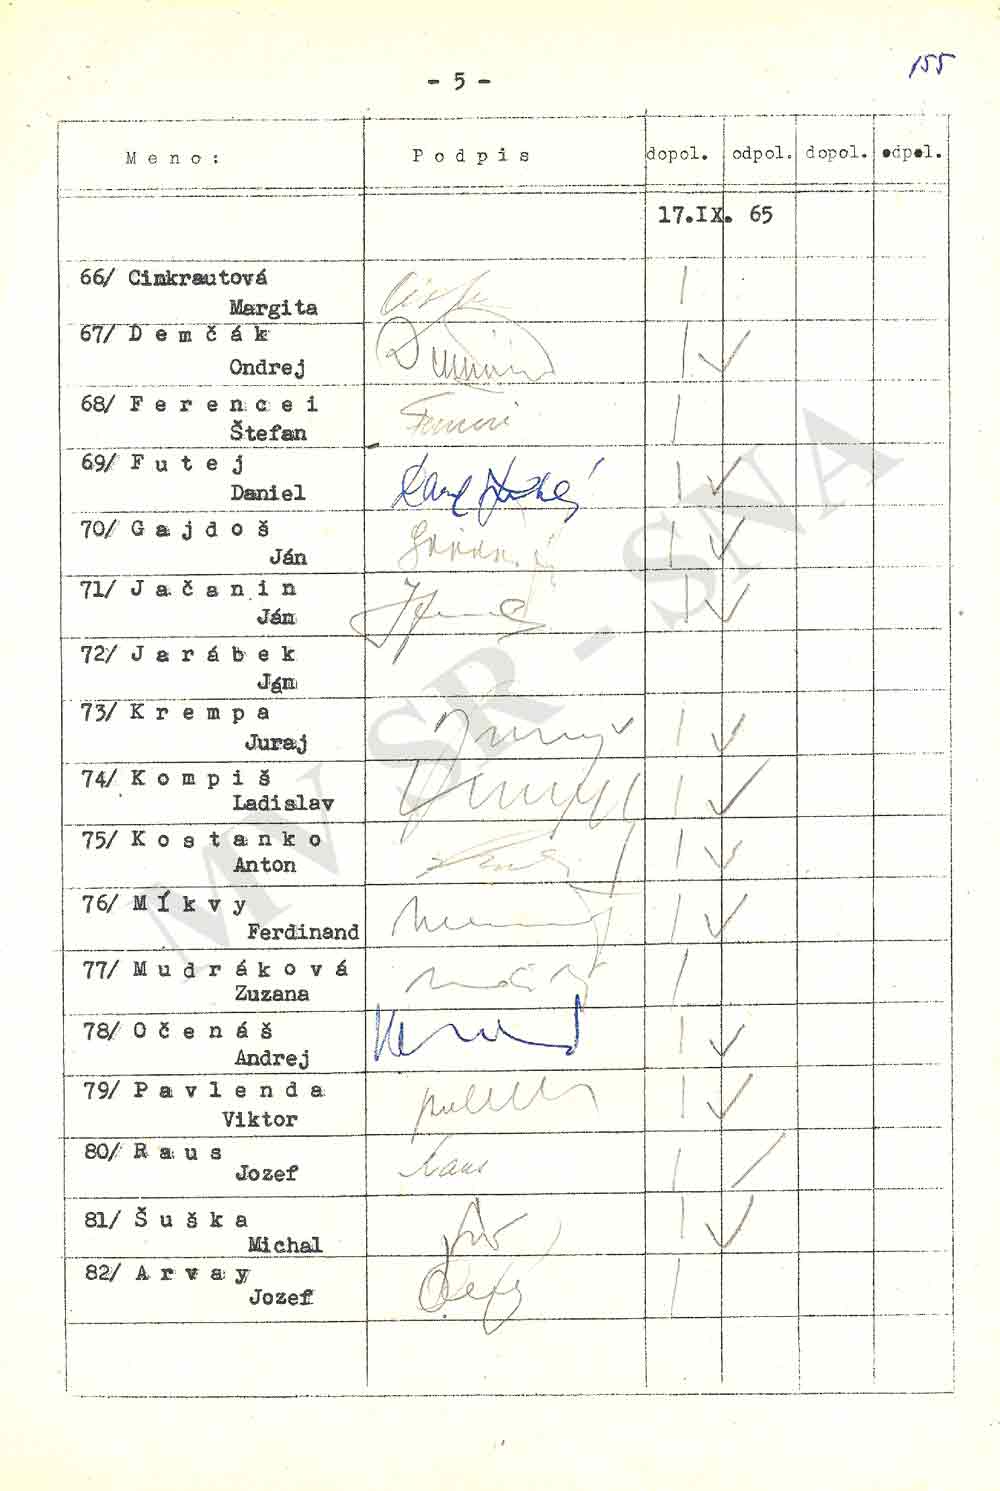 155
- 5 -
Meno: Podpis dopol. odpol. dopol. odpol.
17.IX. 65
66/ Cinkrautová
Margita
67/ Demčák
Ondrej
68/ Ferencei
Štefan
69/ Futej
Daniel
70/ Gajdoš
Ján
71/ Jačanin
Ján
72/ Jarábek
Ján
73/ Krempa
Juraj
74/ Kompiš
Ladislav
75/ Kostanko
Anton
76/ Míkvy
Ferdinand
77/ Mudráková
Zuzana
78/ Očenáš
Andrej
79/ Pavlenda
Viktor
80/ Raus
Jozef Raus
81/ Šuška
Michal
82/ Arvay
Jozef
MV SR - SNA